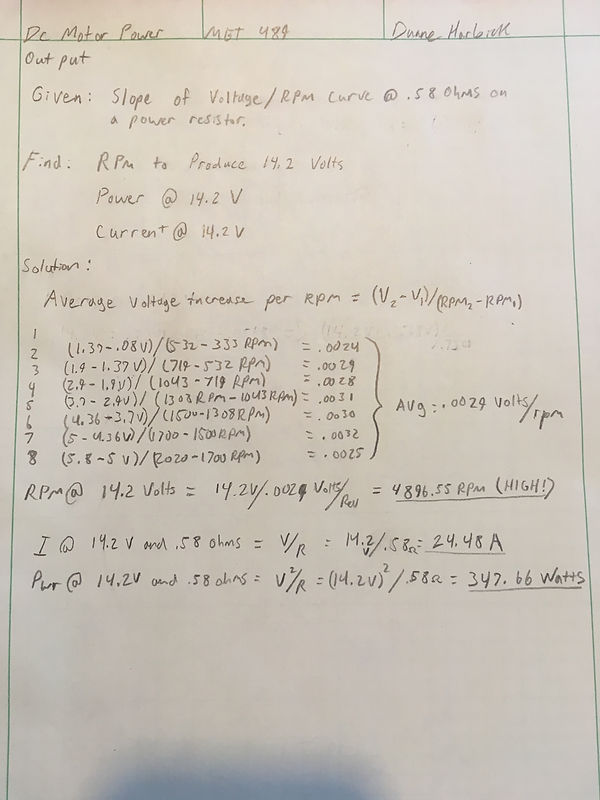 Dc Motor Power MET 489 Duane Harbick
Output
Given: Slope of Voltage/RPM Curve @ .58 Ohms on
a power resistor.
Find: RPM to Produce 14.2 Volts
Power @ 14.2 V
Current @ 14.2 V
Solution:
Average Voltage increase per RPM = (V2 - V1)/(RPM2 - RPM1)
1
2 (1.37-.08V)/(532-333 RPM) = .0024
3 (1.9-1.37V)/(719-532 RPM) = .0029
4 (2.9-1.9V)/(1043-719 RPM) = .0028
5 (3.7-2.9V)/(1308RPM-1043RPM) = .0031
6 (4.36-3.7V)/(1500-1308RPM) = .0030
7 (5-4.36V)/(1700-1500RPM) = .0032
8 (5.8-5V)/(2020-1700RPM) = .0025
Avg = .0029 Volts/rpm
RPM @ 14.2 Volts = 14.2V/.0029 Volts/Rev = 4896.55 RPM (HIGH!)
I @ 14.2 V and .58 ohms = V/R = 14.2V/.58Ω = 24.48 A
Pwr @ 14.2V and .58 ohms = V²/R = (14.2V)²/.58Ω = 347.66 Watts